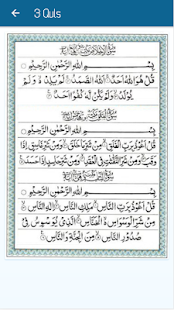 3 Quls
بِسْمِ اللهِ الرَّحْمٰنِ الرَّحِيْمِ
قُلْ هُوَ اللهُ اَحَدٌ اَللهُ الصَّمَدُ لَمْ يَلِدْ وَلَمْ
يُوْلَدْ وَلَمْ يَكُنْ لَّهٗ كُفُوًا اَحَدٌ
بِسْمِ اللهِ الرَّحْمٰنِ الرَّحِيْمِ
قُلْ اَعُوْذُ بِرَبِّ الْفَلَقِ مِنْ شَرِّ مَا خَلَقَ وَمِنْ شَرِّ غَاسِقٍ اِذَا
وَقَبَ وَمِنْ شَرِّ النَّفّٰثٰتِ فِي الْعُقَدِ وَمِنْ شَرِّ حَاسِدٍ اِذَا حَسَدَ
بِسْمِ اللهِ الرَّحْمٰنِ الرَّحِيْمِ
قُلْ اَعُوْذُ بِرَبِّ النَّاسِ مَلِكِ النَّاسِ اِلٰهِ النَّاسِ
مِنْ شَرِّ الْوَسْوَاسِ الْخَنَّاسِ الَّذِيْ يُوَسْوِسُ فِيْ
صُدُوْرِ النَّاسِ مِنَ الْجِنَّةِ وَالنَّاسِ